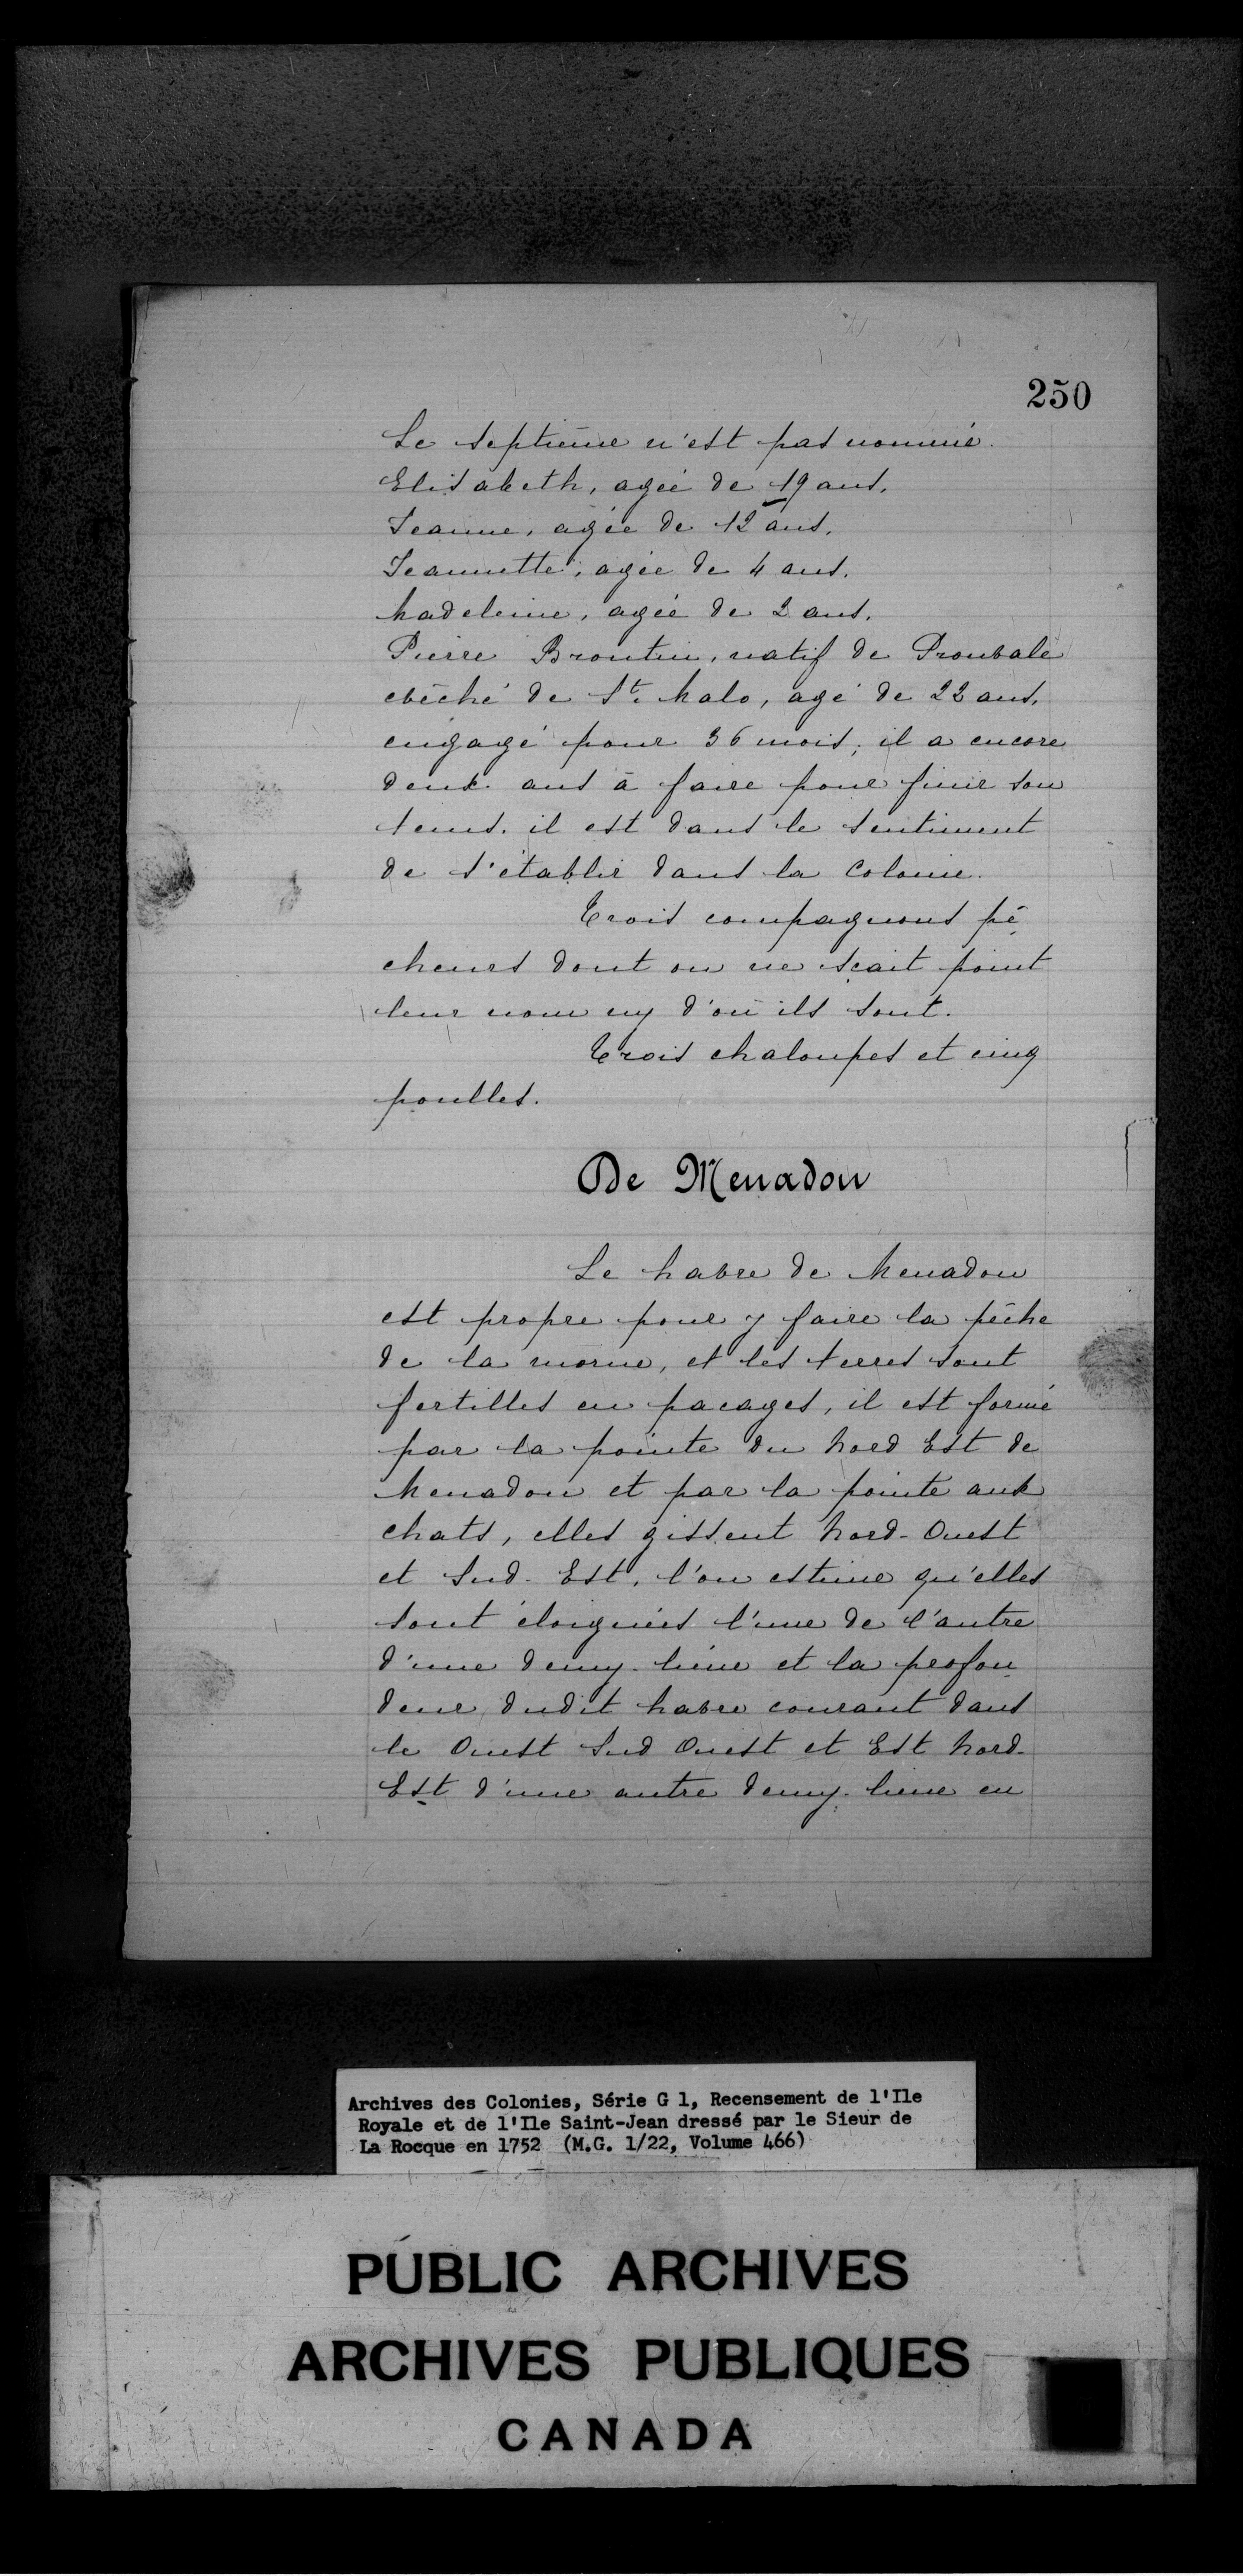 250
Le septième n'est pas nommé.
Elisabeth, agée de 19 ans,
Jeanne, agée de 12 ans,
Jeannette, agée de 4 ans.
Madeleine, agée de 2 ans.
Pierre Broutin, natif de Proubalé
evêché de St. Malo, agé de 22 ans,
engagé pour 36 mois, il a encore
deux ans à faire pour finir son
tems. il est dans le sentiment
de s'établir dans la Colonie.
Trois compagnons pê
cheurs dont on ne sçait point
leur nom ny d'où ils sont.
Trois chaloupes et cinq
poulles.
De Menadou
Le havre de Menadou
est propre pour y faire la pêche
de la morue, et les terres sont
fertilles en pacages, il est formé
par la pointe du Nord Est de
Menadou et par la pointe aux
chats, elles gissent Nord-Ouest
et Sud-Est, l'on estime qu'elles
sont éloignées l'une de l'autre
d'une demy-lieue et la profon
deur dudit havre courant dans
le Ouest Sud Ouest et Est Nord-
Est d'une autre demy-lieue en
Archives des Colonies, Série G 1, Recensement de l'Ile
Royale et de l'Ile Saint-Jean dressé par le Sieur de
La Rocque en 1752 (M.G. 1/22, Volume 466)
PUBLIC ARCHIVES
ARCHIVES PUBLIQUES
CANADA